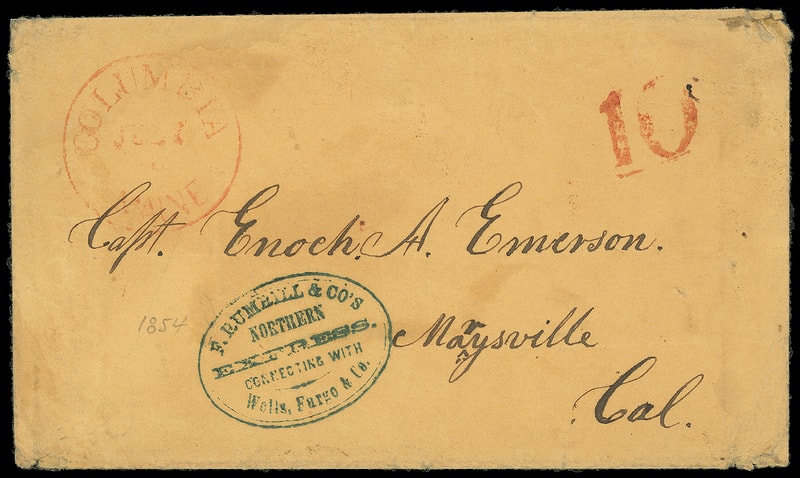 COLUMBIA
JULY
MAINE
10
Capt. Enoch. A. Emerson.
Marysville
Cal.
1854
F. RUMRILL & CO'S
NORTHERN
EXPRESS.
CONNECTING WITH
Wells, Fargo & Co.